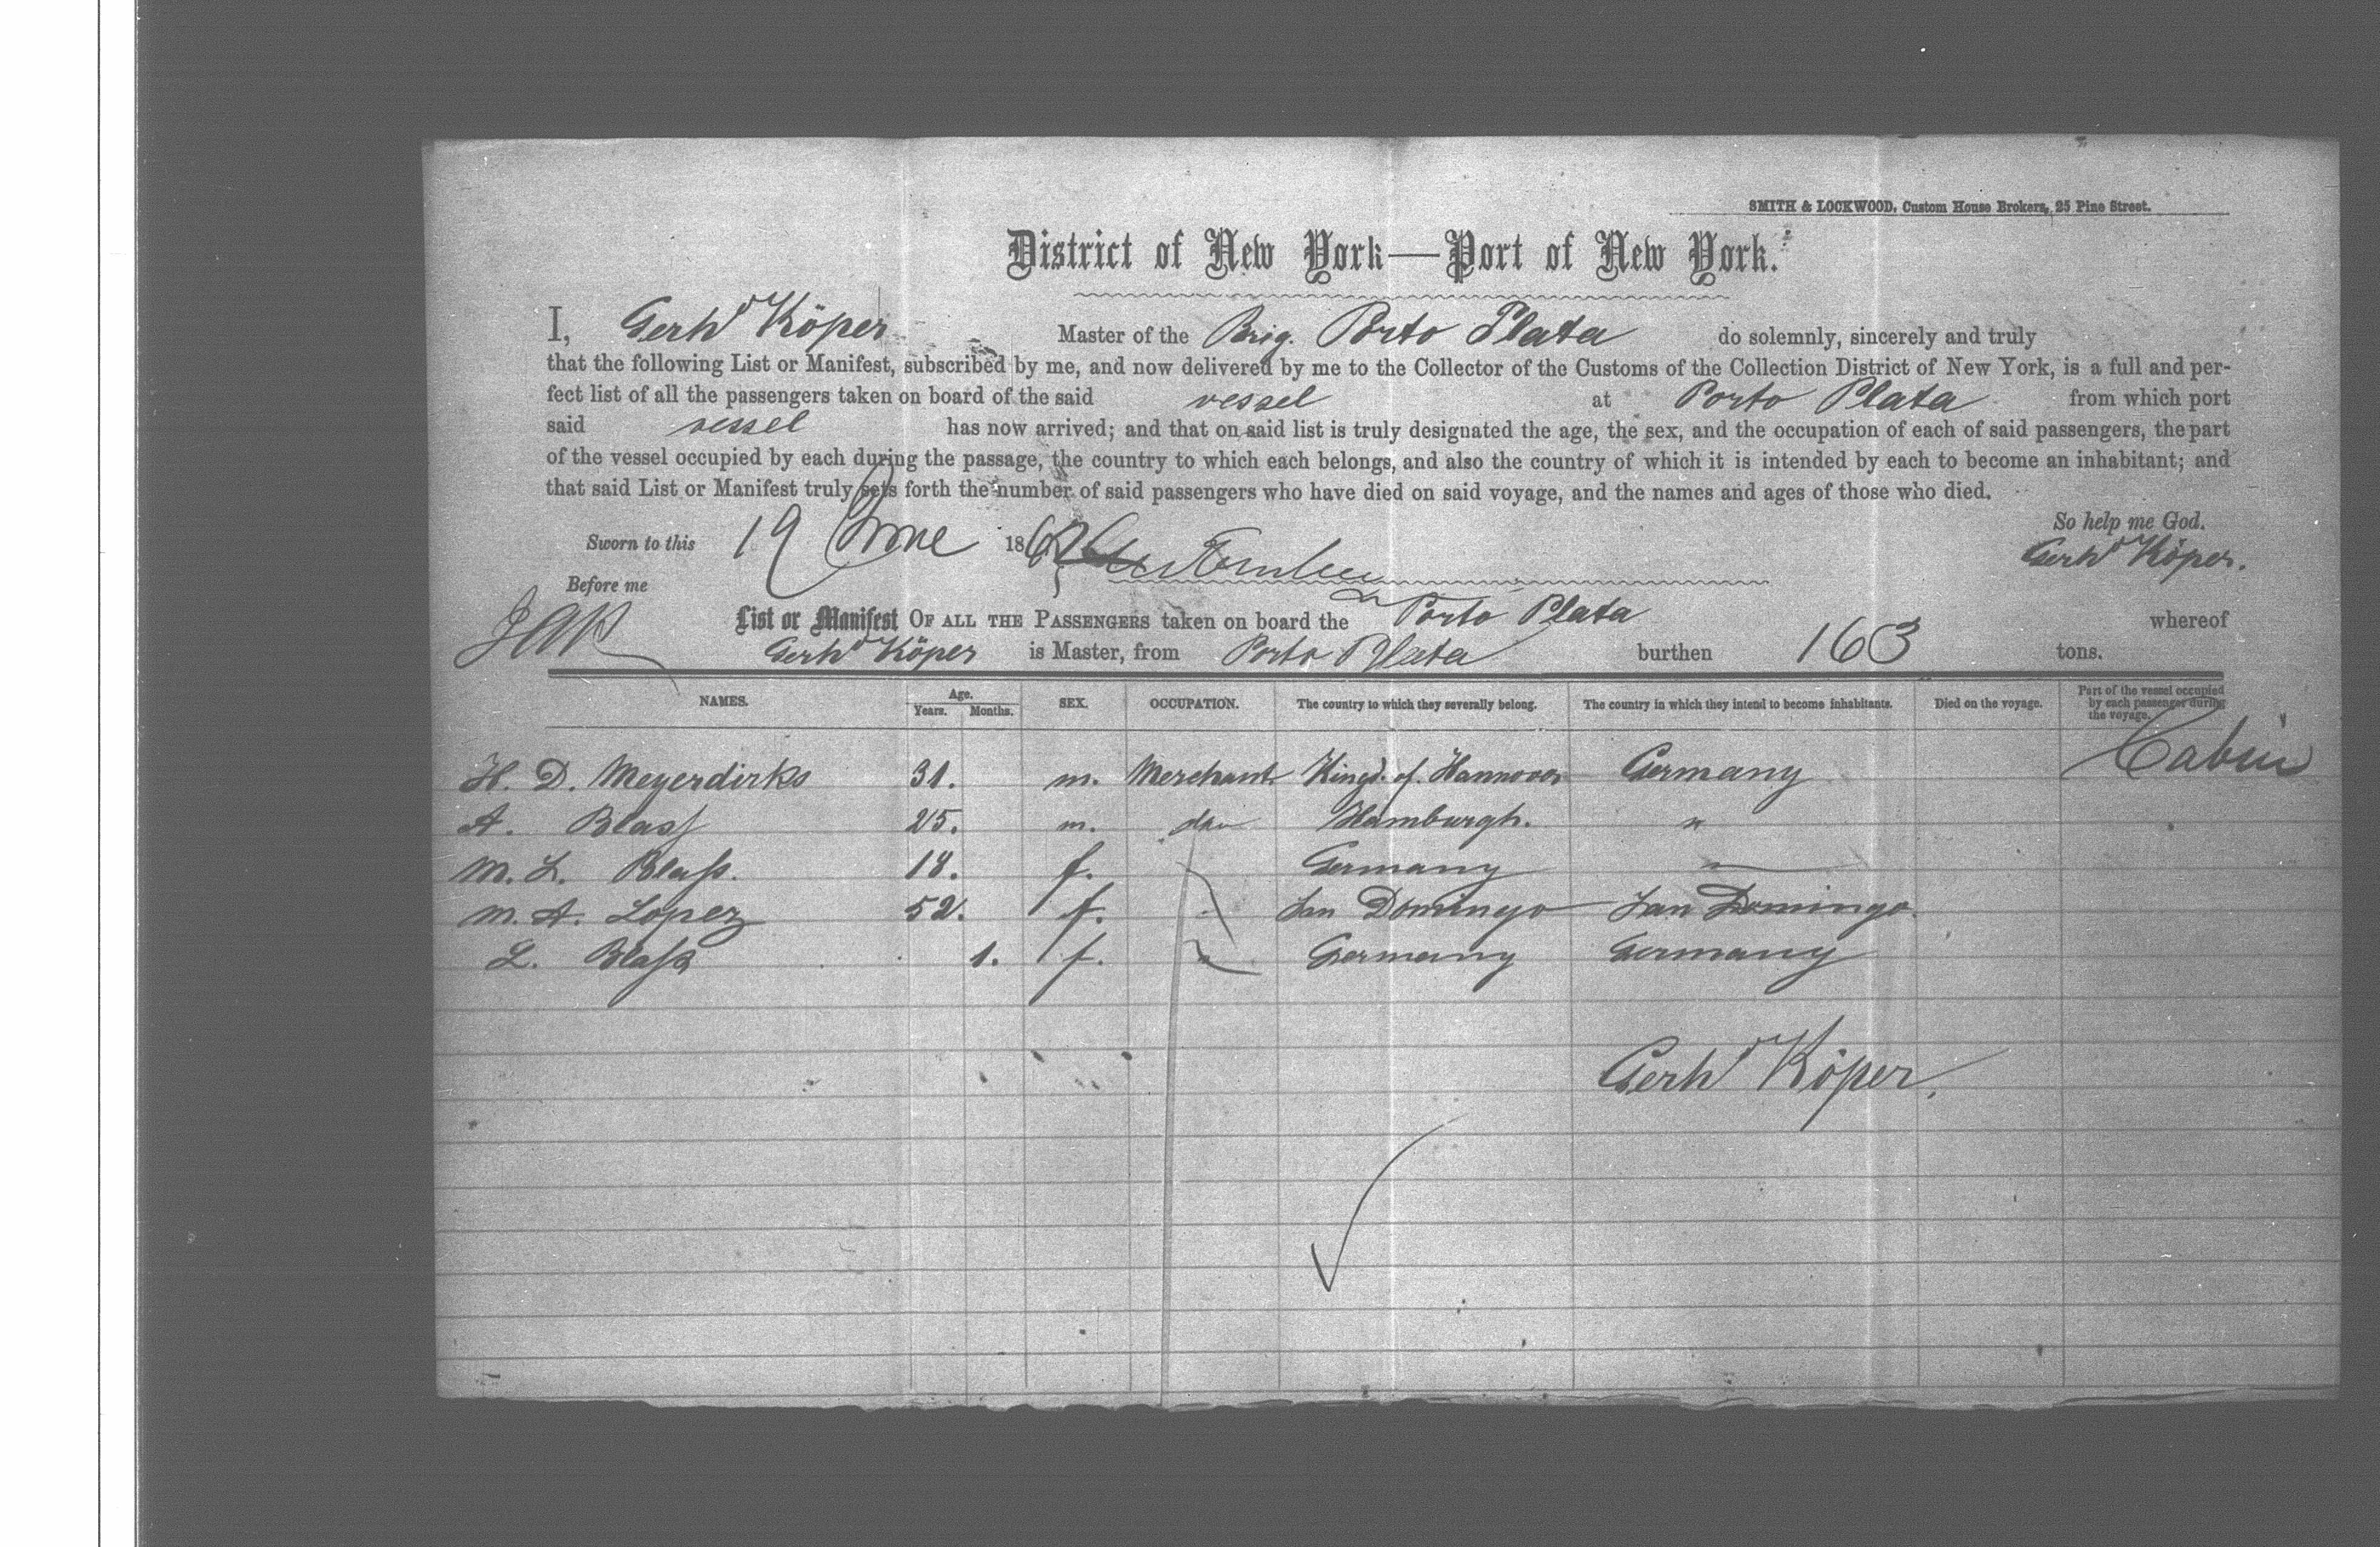 SMITH & LOCKWOOD, Custom House Brokers, 25 Pine Street.
District of New York—Port of New York.
I, Gerhd Köper Master of the Brig. Porto Plata do solemnly, sincerely and truly
that the following List or Manifest, subscribed by me, and now delivered by me to the Collector of the Customs of the Collection District of New York, is a full and per-
fect list of all the passengers taken on board of the said vessel at Porto Plata from which port
said vessel has now arrived; and that on said list is truly designated the age, the sex, and the occupation of each of said passengers, the part
of the vessel occupied by each during the passage, the country to which each belongs, and also the country of which it is intended by each to become an inhabitant; and
that said List or Manifest truly sets forth the number of said passengers who have died on said voyage, and the names and ages of those who died.
So help me God.
Sworn to this 19 June 186
Gerhd Köper.
Before me
List or Manifest OF ALL THE PASSENGERS taken on board the Porto Plata whereof
Gerhd Köper is Master, from Porto Plata burthen 163 tons.
NAMES. Age. Years. Months. SEX. OCCUPATION. The country to which they severally belong. The country in which they intend to become inhabitants. Died on the voyage. Part of the vessel occupied by each passenger during the voyage.
H. D. Meyerdirks 31. m. Merchant Kingd. of. Hannover Germany Cabin
A. Blass 25. m. do Hamburgh. "
M. L. Blass. 18. f. Germany "
M. A. Lopez 52. f. San Domingo San Domingo.
L. Blass 1. f. Germany Germany
Gerhd Köper.